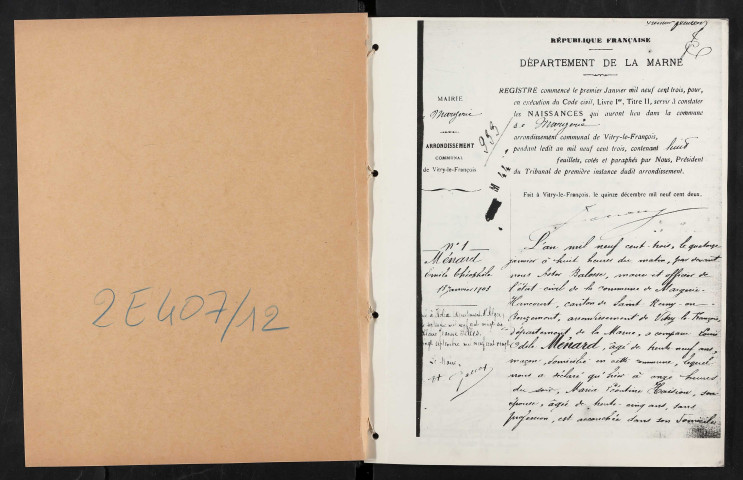 2E407/12
RÉPUBLIQUE FRANÇAISE
DÉPARTEMENT DE LA MARNE
MAIRIE
Margerie
ARRONDISSEMENT
COMMUNAL
de Vitry-le-François
933
REGISTRE commencé le premier Janvier mil neuf cent trois, pour,
en exécution du Code civil, Livre Ier, Titre II, servir à constater
les NAISSANCES qui auront lieu dans la commune
de Margerie
arrondissement communal de Vitry-le-François,
pendant ledit an mil neuf cent trois, contenant huit
feuillets, cotés et paraphés par Nous, Président
du Tribunal de première instance dudit arrondissement.
Fait à Vitry-le-François, le quinze décembre mil neuf cent deux.
N° 1
Ménard
Emile Théophile
13 Janvier 1903
Le Maire,
L'an mil neuf cent trois, le quatorze
janvier à huit heures du matin, par devant
nous Balosse, maire et officier de
l'état civil de la commune de Margerie-
Hancourt, canton de Saint Remy-en-
Bouzemont, arrondissement de Vitry le François,
département de la Marne, a comparu
Ménard, âgé de trente neuf ans,
maçon domicilié en cette commune, lequel
nous a déclaré qu'hier à onze heures
du soir, Maria son
épouse, âgée de trente cinq ans, sans
profession, est accouchée dans son domicile